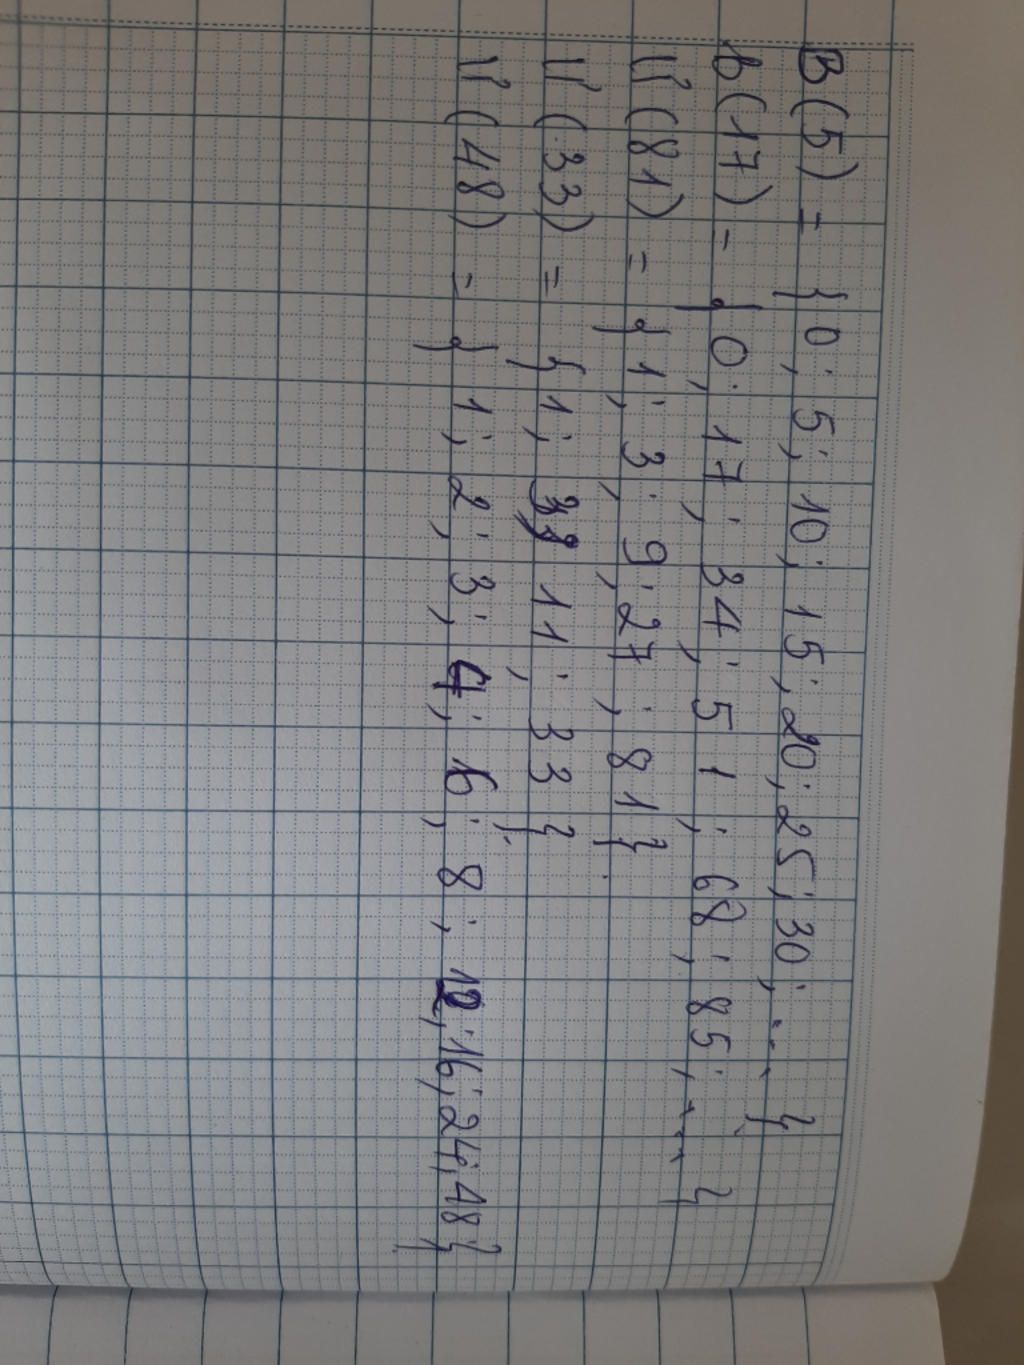 B(5) = {0; 5; 10; 15; 20; 25; 30; ... }
b(17) = {0; 17; 34; 51; 68; 85; ... }
Ư(81) = {1; 3; 9; 27; 81}.
Ư(33) = {1; 3; 11; 33}.
Ư(48) = {1; 2; 3; 4; 16; 8; 12; 16; 24; 48}